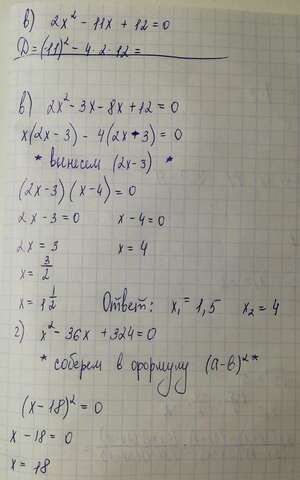 в) 2x² - 11x + 12 = 0
D = (11)² - 4 · 2 · 12 =
в) 2x² - 3x - 8x + 12 = 0
x(2x - 3) - 4(2x - 3) = 0
* вынесем (2x-3) *
(2x - 3)(x - 4) = 0
2x - 3 = 0 x - 4 = 0
2x = 3 x = 4
x = 3/2
x = 1 1/2 Ответ: x₁ = 1,5 x₂ = 4
г) x² - 36x + 324 = 0
* соберем в формулу (a-b)² *
(x - 18)² = 0
x - 18 = 0
x = 18